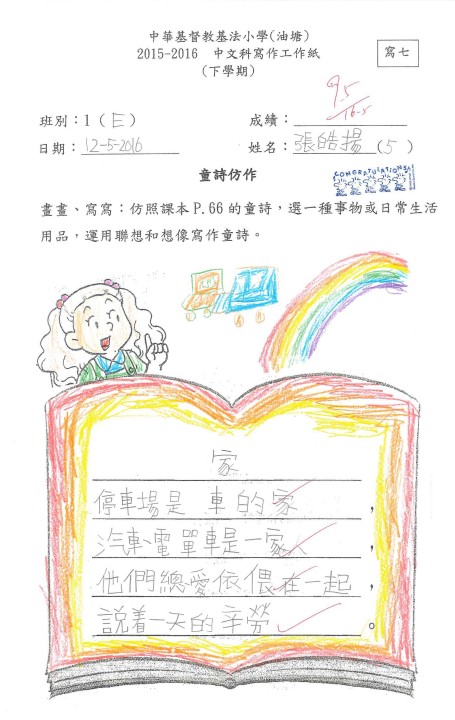 中華基督教基法小學(油塘)
2015-2016 中文科寫作工作紙
(下學期)
寫七
班別：1（E）
成績：9.5
16-5
日期：12-5-2016
姓名：張皓揚（5）
童詩仿作
CONGRATULATIONS!
畫畫、寫寫：仿照課本 P.66 的童詩，選一種事物或日常生活
用品，運用聯想和想像寫作童詩。
家
停車場是 車的家，
汽車、電單車是一家人，
他們總愛依偎在一起，
說着一天的辛勞。